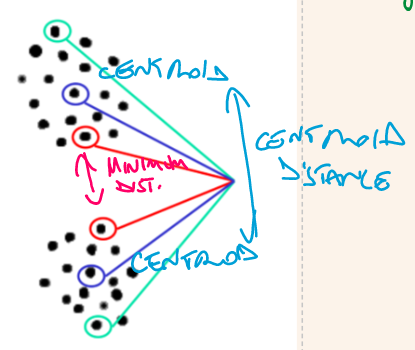 CENTROID
CENTROID
DISTANCE
MINIMUM
DIST.
CENTROID